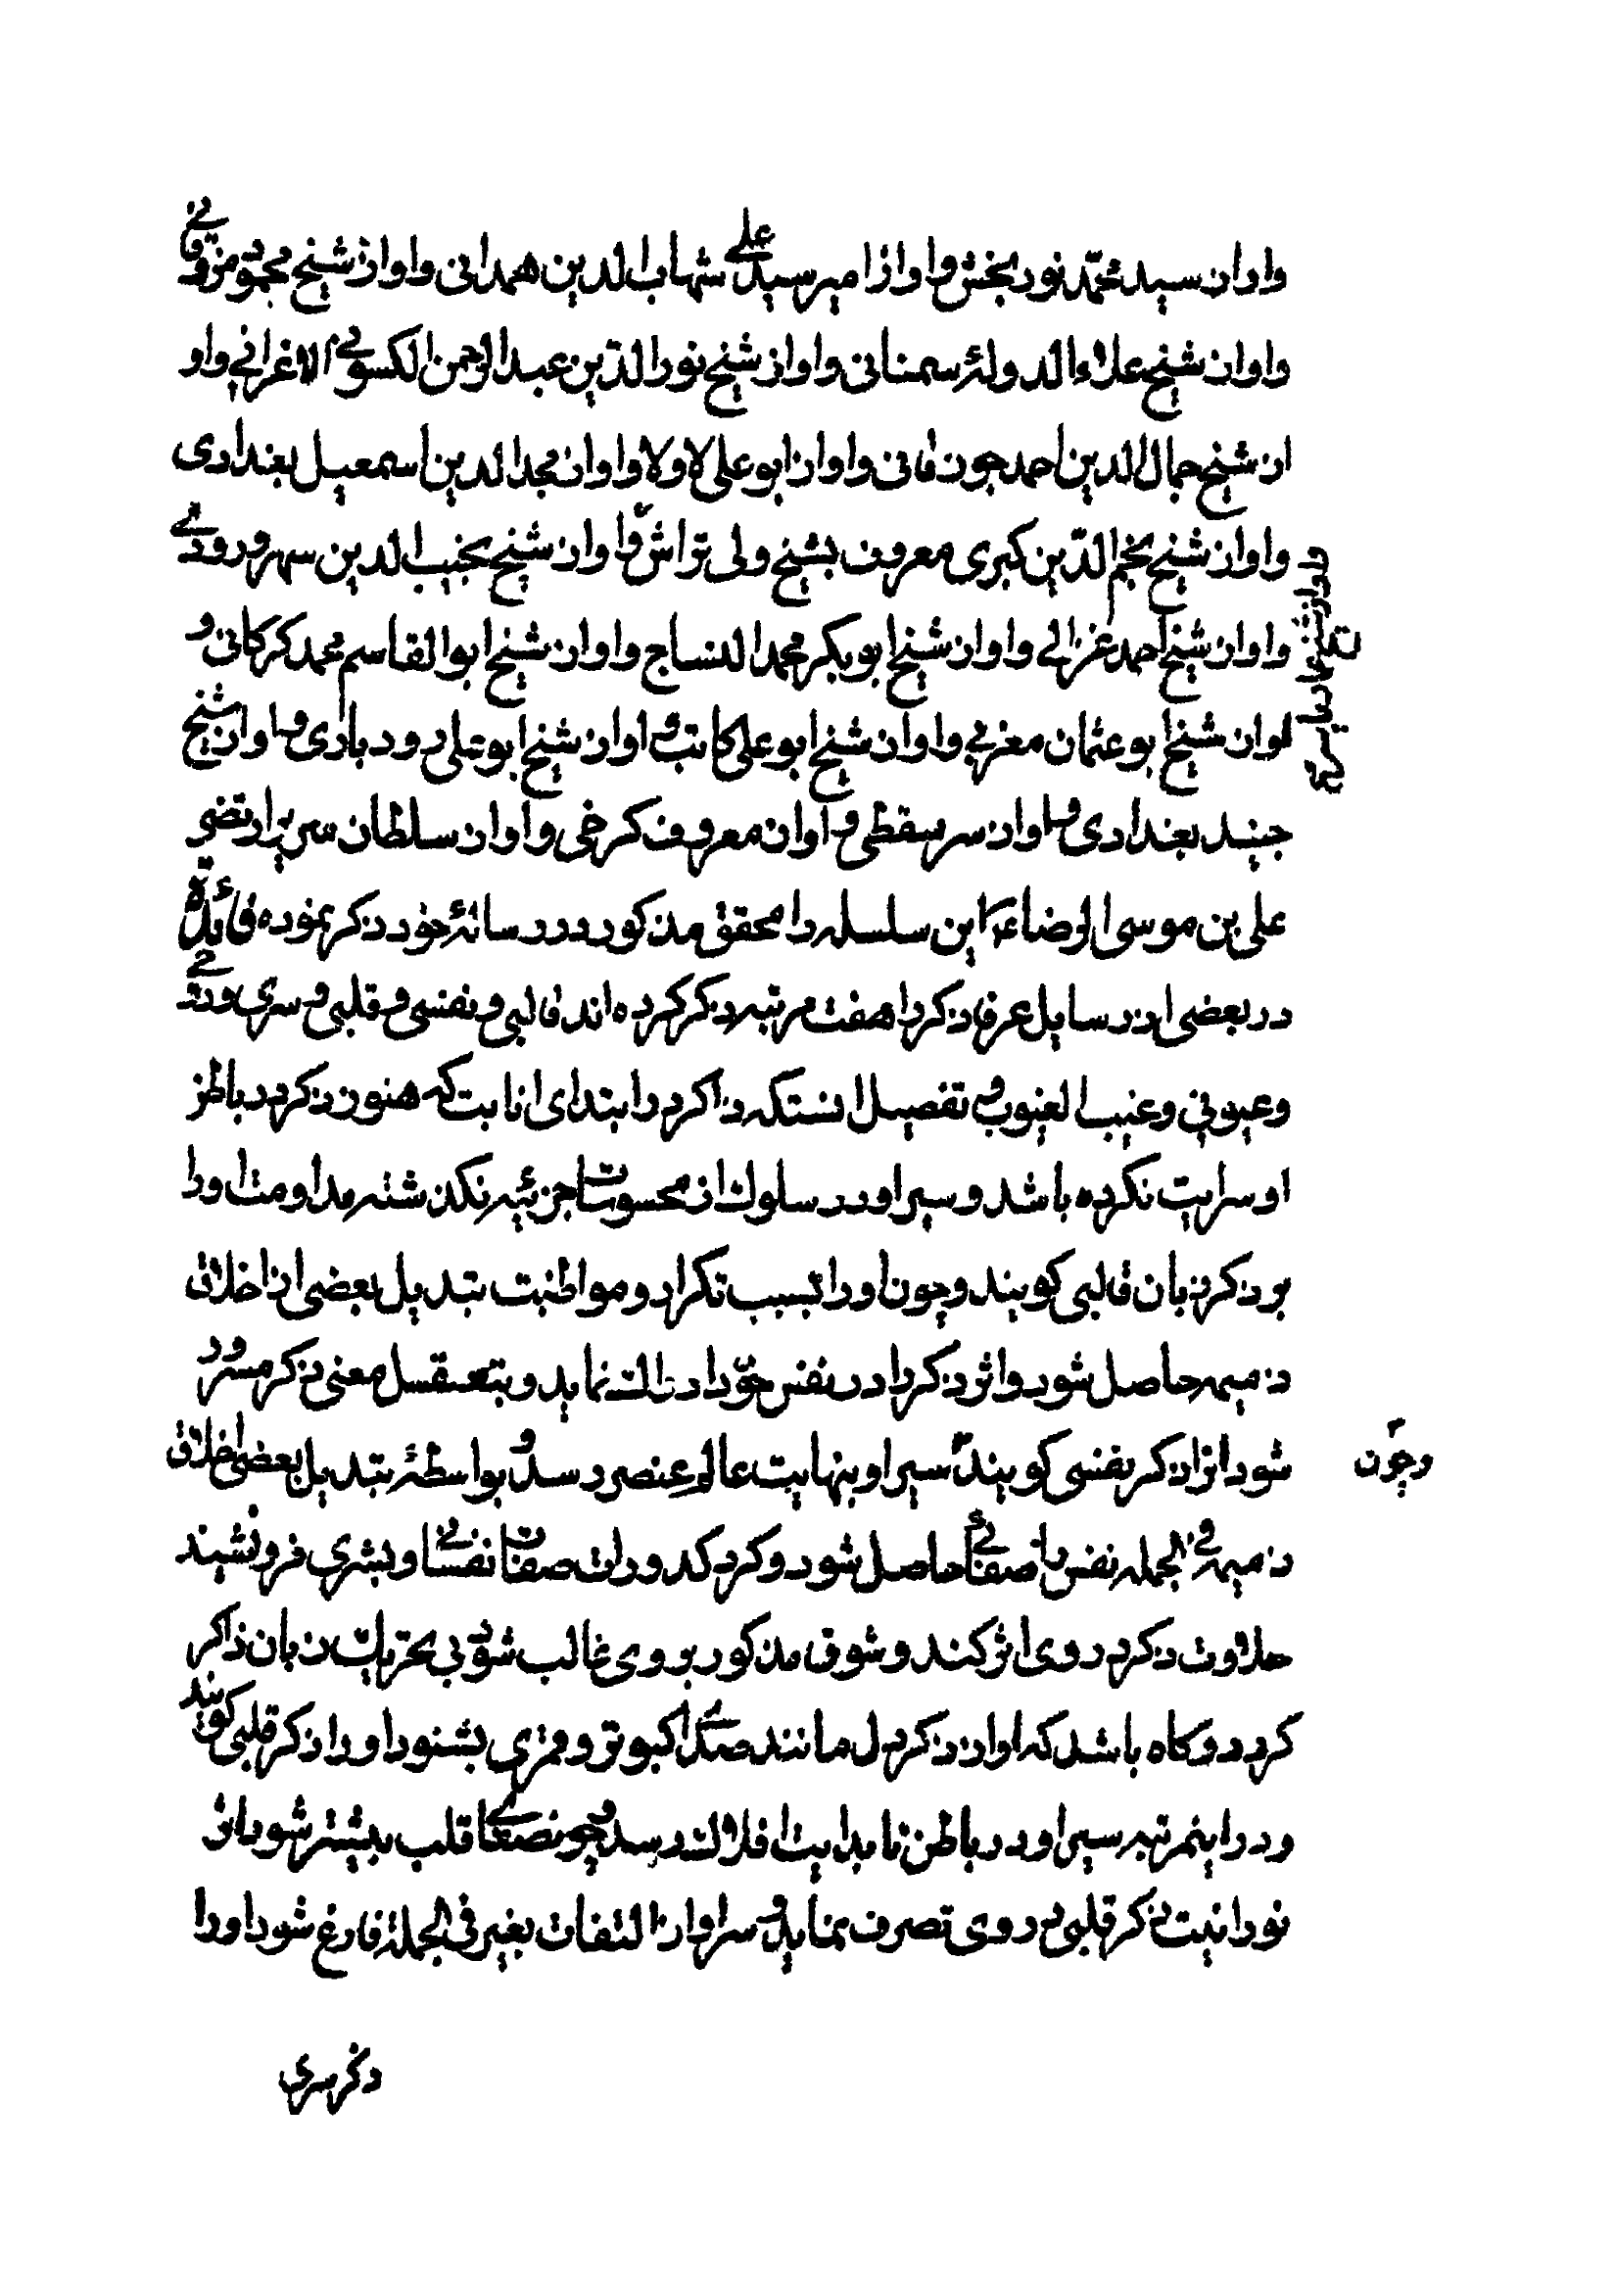 و او از سید محمد نوربخش و او از امیر سید علی شهاب الدین همدانی و او از شیخ محمود مزدقانی
و او از شیخ علاء الدولهٔ سمنانی و او از شیخ نور الدین عبد الرحمن الکسوی الاغرانی و او
از شیخ جمال الدین احمد جون فانی و او از ابو علی لا ولا و او از مجد الدین اسمعیل بغدادی
و او از شیخ نجم الدین کبری معروف بشیخ ولی تراش و او از شیخ نجیب الدین سهروردی
و او از شیخ احمد غزالی و او از شیخ ابوبکر محمد النساج و او از شیخ ابو القاسم محمد کرکانی و
او از شیخ ابو عثمان مغربی و او از شیخ ابو علی کاتب و او از شیخ ابو علی رودباری و او از شیخ
جنید بغدادی و او از سر سقطی و او از معروف کرخی و او از سلطان سریر ارتضی
علی بن موسی الرضا ع این سلسله را محقق مذکور در رسالهٔ خود ذکر نموده فائدة
در بعضی از رسایل عرفا ذکر را هفت مرتبه ذکر کرده اند قالبی و نفسی و قلبی و سری و روحی
و عیونی و غیب الغیوب و تفصیل انستکه ذاکر در ابتدای انابت که هنوز ذکر در باطن
او سرایت نکرده باشد و سیر او در سلوک از محسوسات جزئیه نکذشته مداومت او را
بر ذکر زبان قالبی کویند و چون او را بسبب تکرار و مواظبت تبدیل بعضی از اخلاق
ذمیمه حاصل شود و اثر ذکر را در نفس خود ادراک نماید و بتعقل معنی ذکر مسرور
شود انرا ذکر نفسی کویند سیر او بنهایت عالم عنصر رسد و بواسطهٔ تبدیل بعضی اخلاق
وچون
ذمیمه فی الجمله نفس را صفائی حاصل شود و کرد کدورات صفات نفسانی و بشری فرو نشیند
حلاوت ذکر در وی اثر کند و شوق مذکور بر وی غالب شود بی تحریک زبان ذاکر
کردد و کاه باشد که اواز ذکر دل مانند صدای کبوتر و قمری بشنود او را ذکر قلبی کویند
و در اینمرتبه سیر او در باطن تا بدایت افلاک رسد و چون صفای قلب بیشتر شود اثر
نورانیت ذکر قلبی در وی تصرف نماید و سر او از التفات بغیر فی الجمله فارغ شود او را
ذکر سری